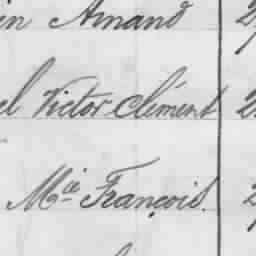 in Amand 2
el Victor Clément 2
Mie François. 2